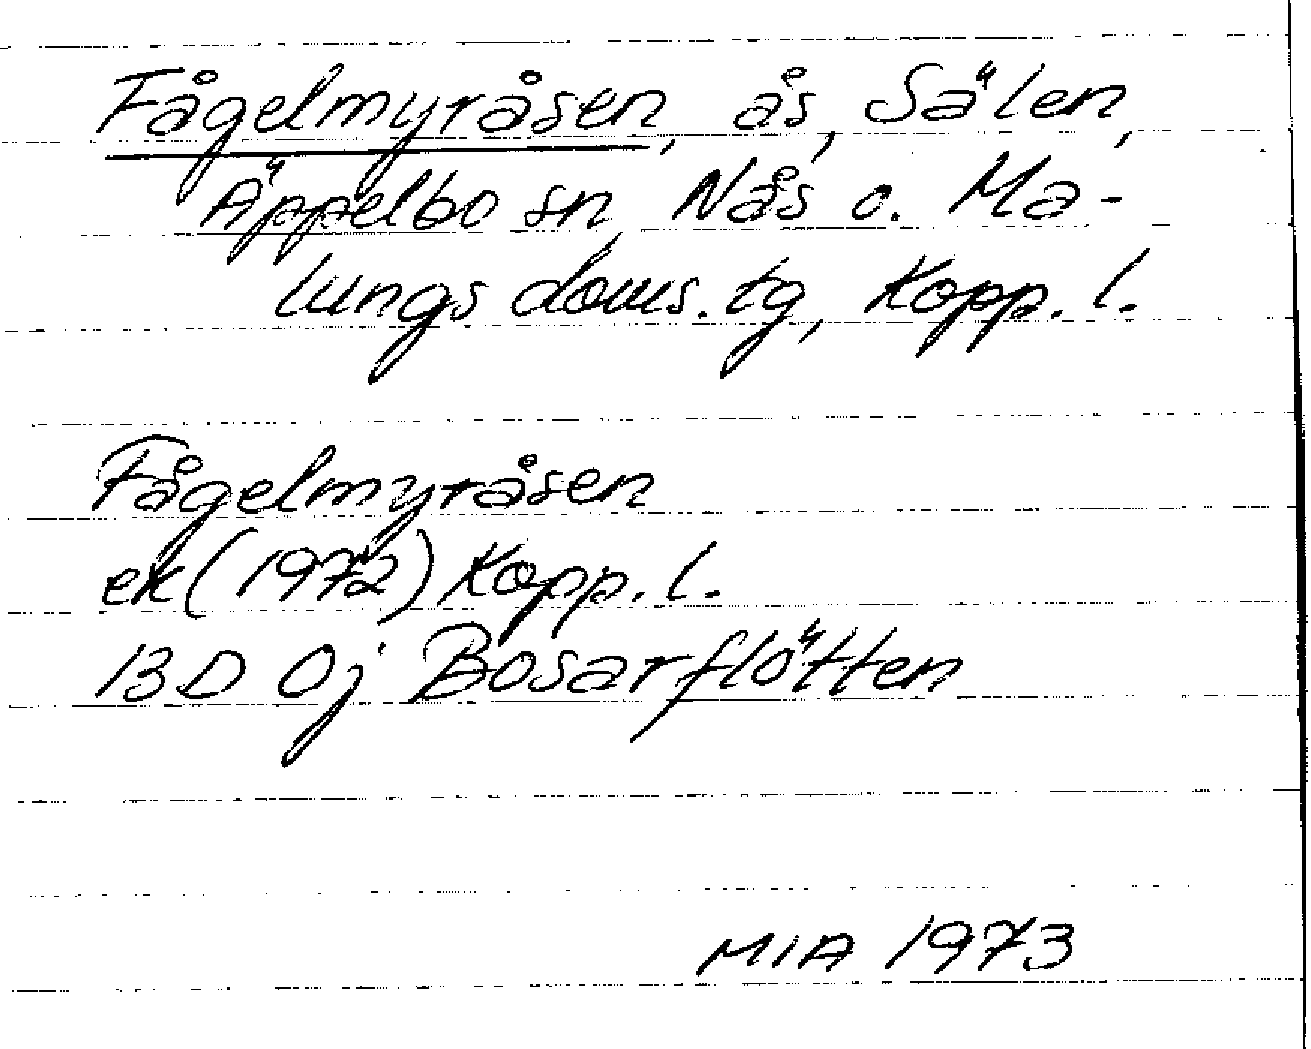 Fågelmyråsen, ås, Sälen,
Äppelbo sn, Nås o. Ma-
lungs doms. tg, Kopp. l.
Fågelmyråsen
ek (1972) Kopp. l.
13D 0j Bosarflötten
MIA 1973